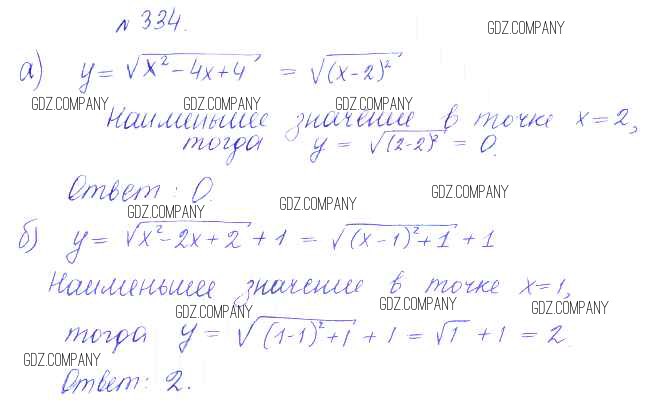 № 334.
GDZ.COMPANY
а) y = √(x² - 4x + 4) = √(x-2)²
GDZ.COMPANY GDZ.COMPANY GDZ.COMPANY
Наименьшее значение в точке x = 2,
тогда y = √(2-2)² = 0.
Ответ: 0.
GDZ.COMPANY GDZ.COMPANY GDZ.COMPANY
б) y = √(x² - 2x + 2) + 1 = √((x-1)² + 1) + 1
Наименьшее значение в точке x = 1,
GDZ.COMPANY GDZ.COMPANY GDZ.COMPANY
тогда y = √((1-1)² + 1) + 1 = √1 + 1 = 2.
GDZ.COMPANY
Ответ: 2.